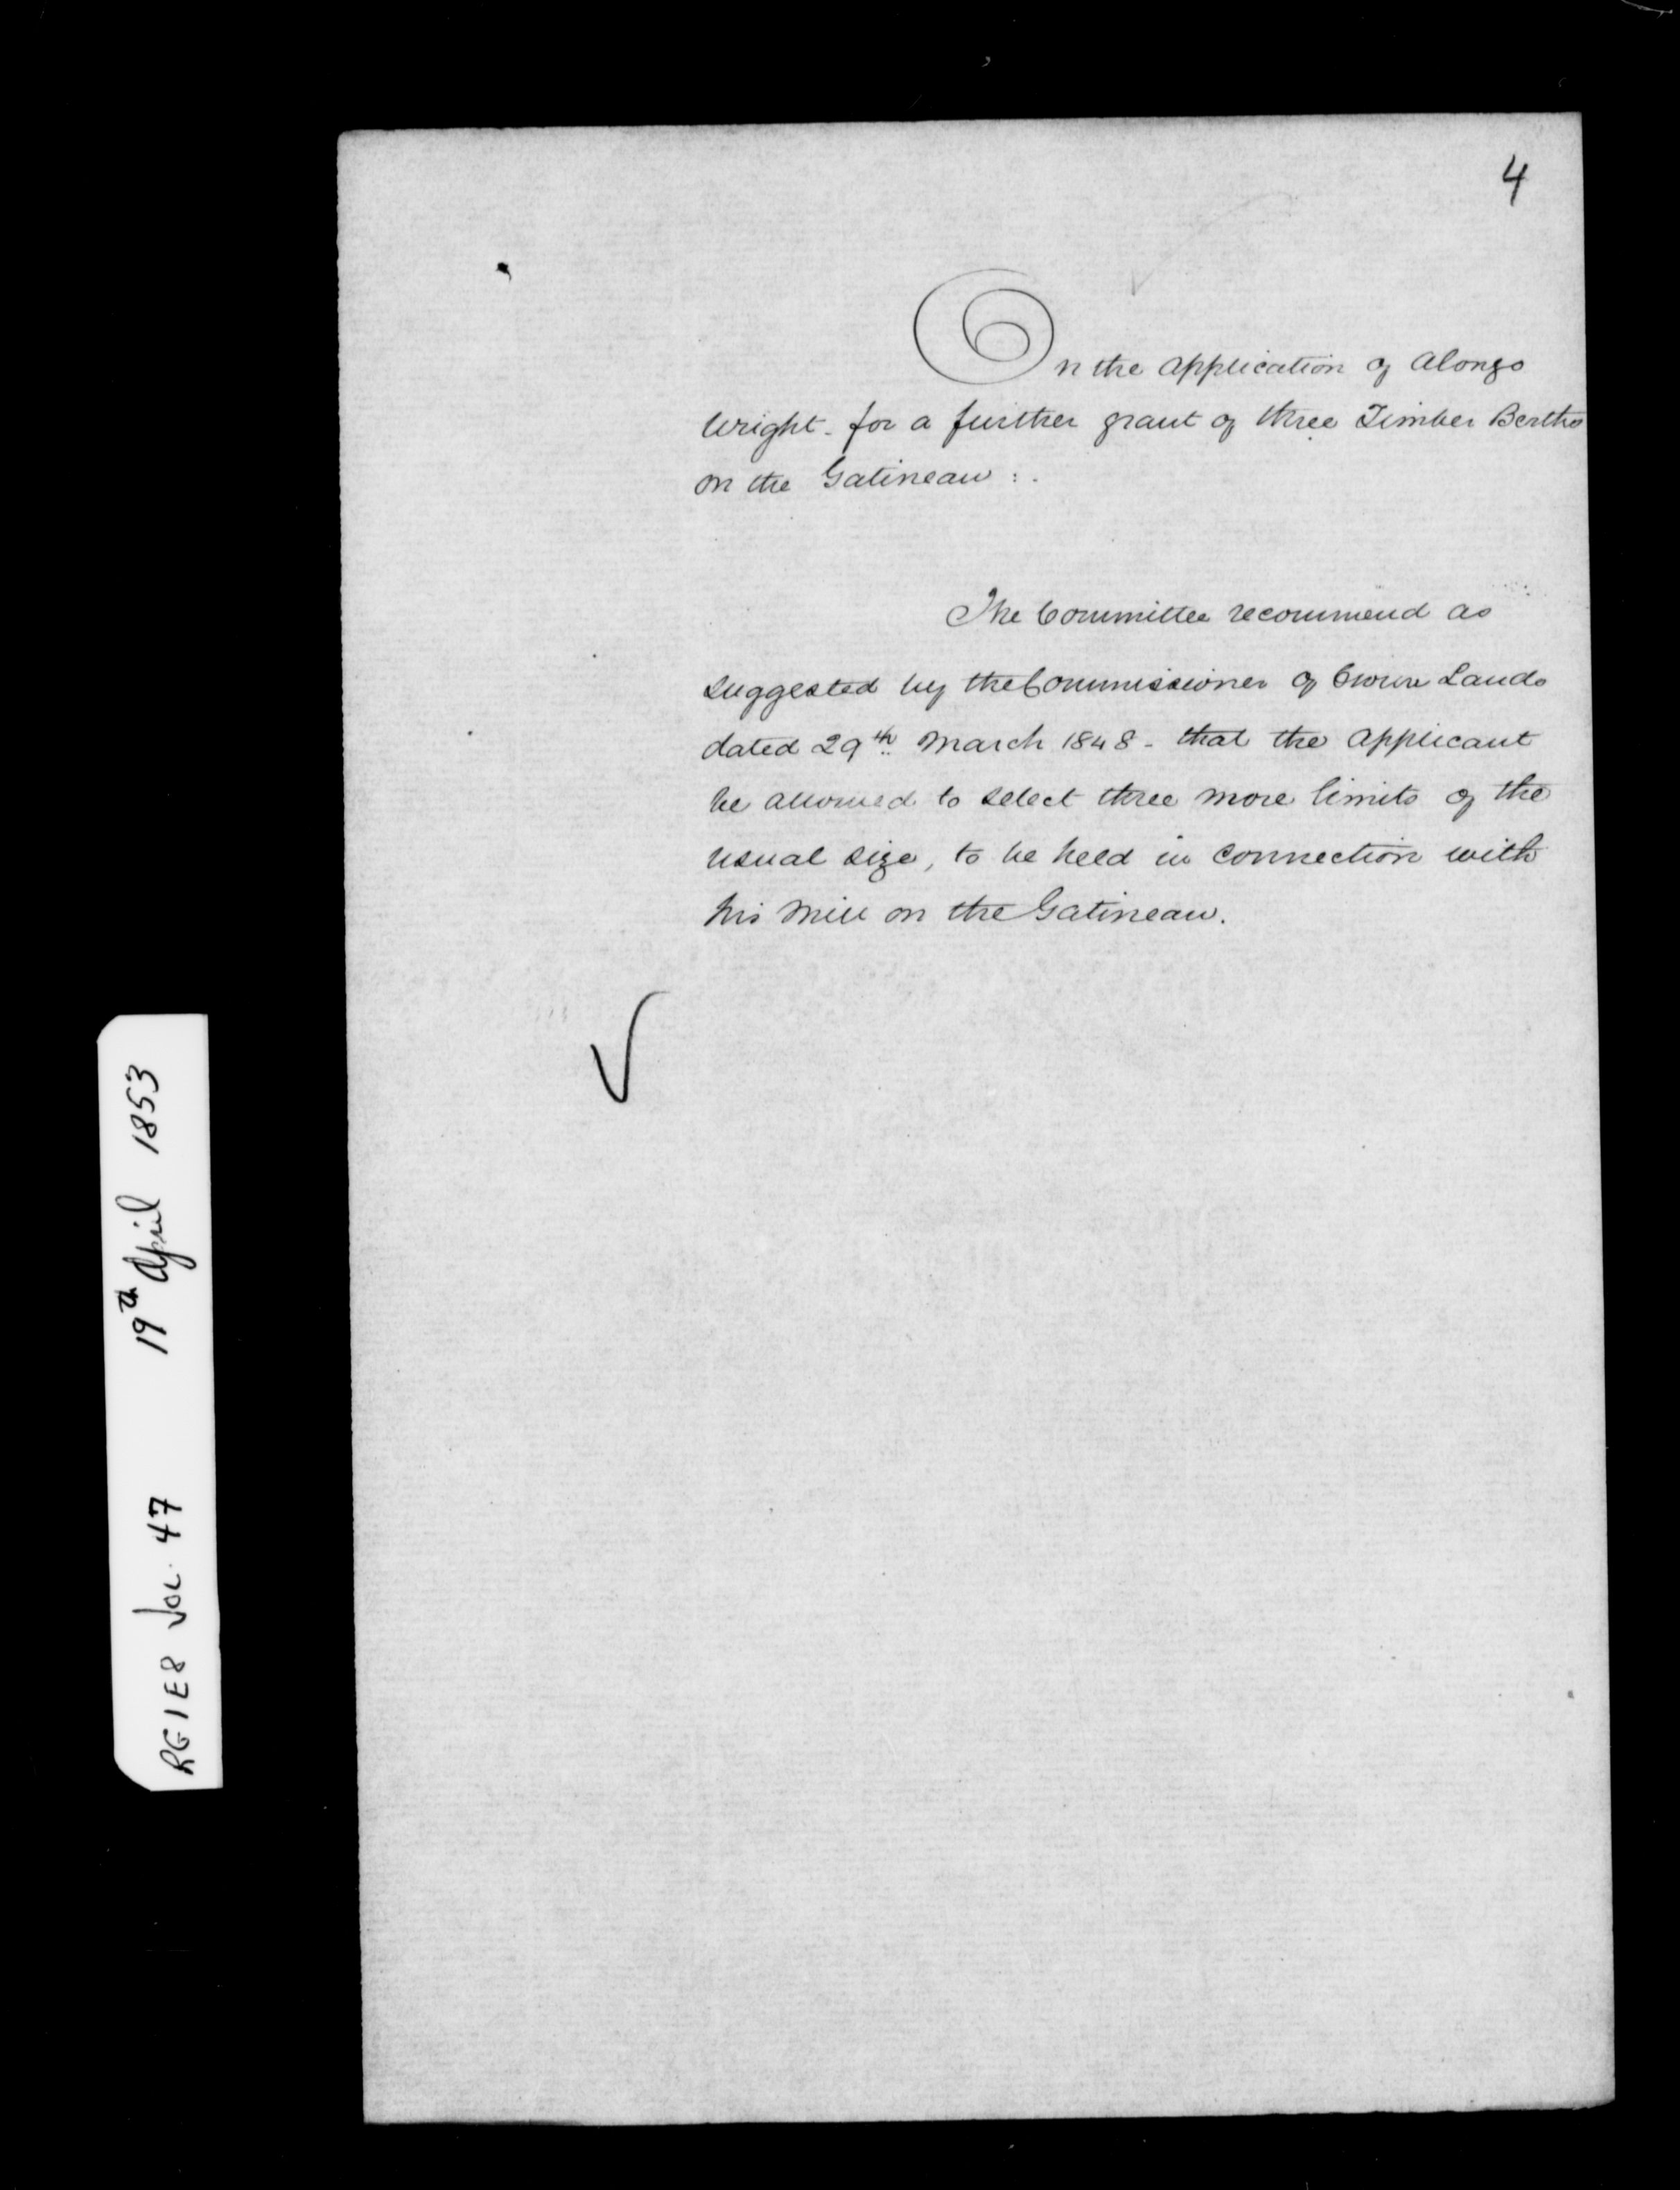 4
On the application of Alonzo
Wright - for a further grant of three Timber Berths
on the Gatineau :.
The Committee recommend as
suggested by the Commissioner of Crown Lands
dated 29th March 1848 - that the applicant
be allowed to select three more limits of the
usual size, to be held in connection with
his Mill on the Gatineau.
RG1E8 VOL. 47 19th April 1853